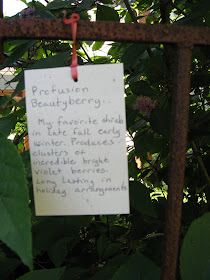 Profusion
Beautyberry...
My favorite shrub
in late fall early
winter. Produces
clusters of
incredible bright
violet berries.
Long lasting in
holiday arrangements